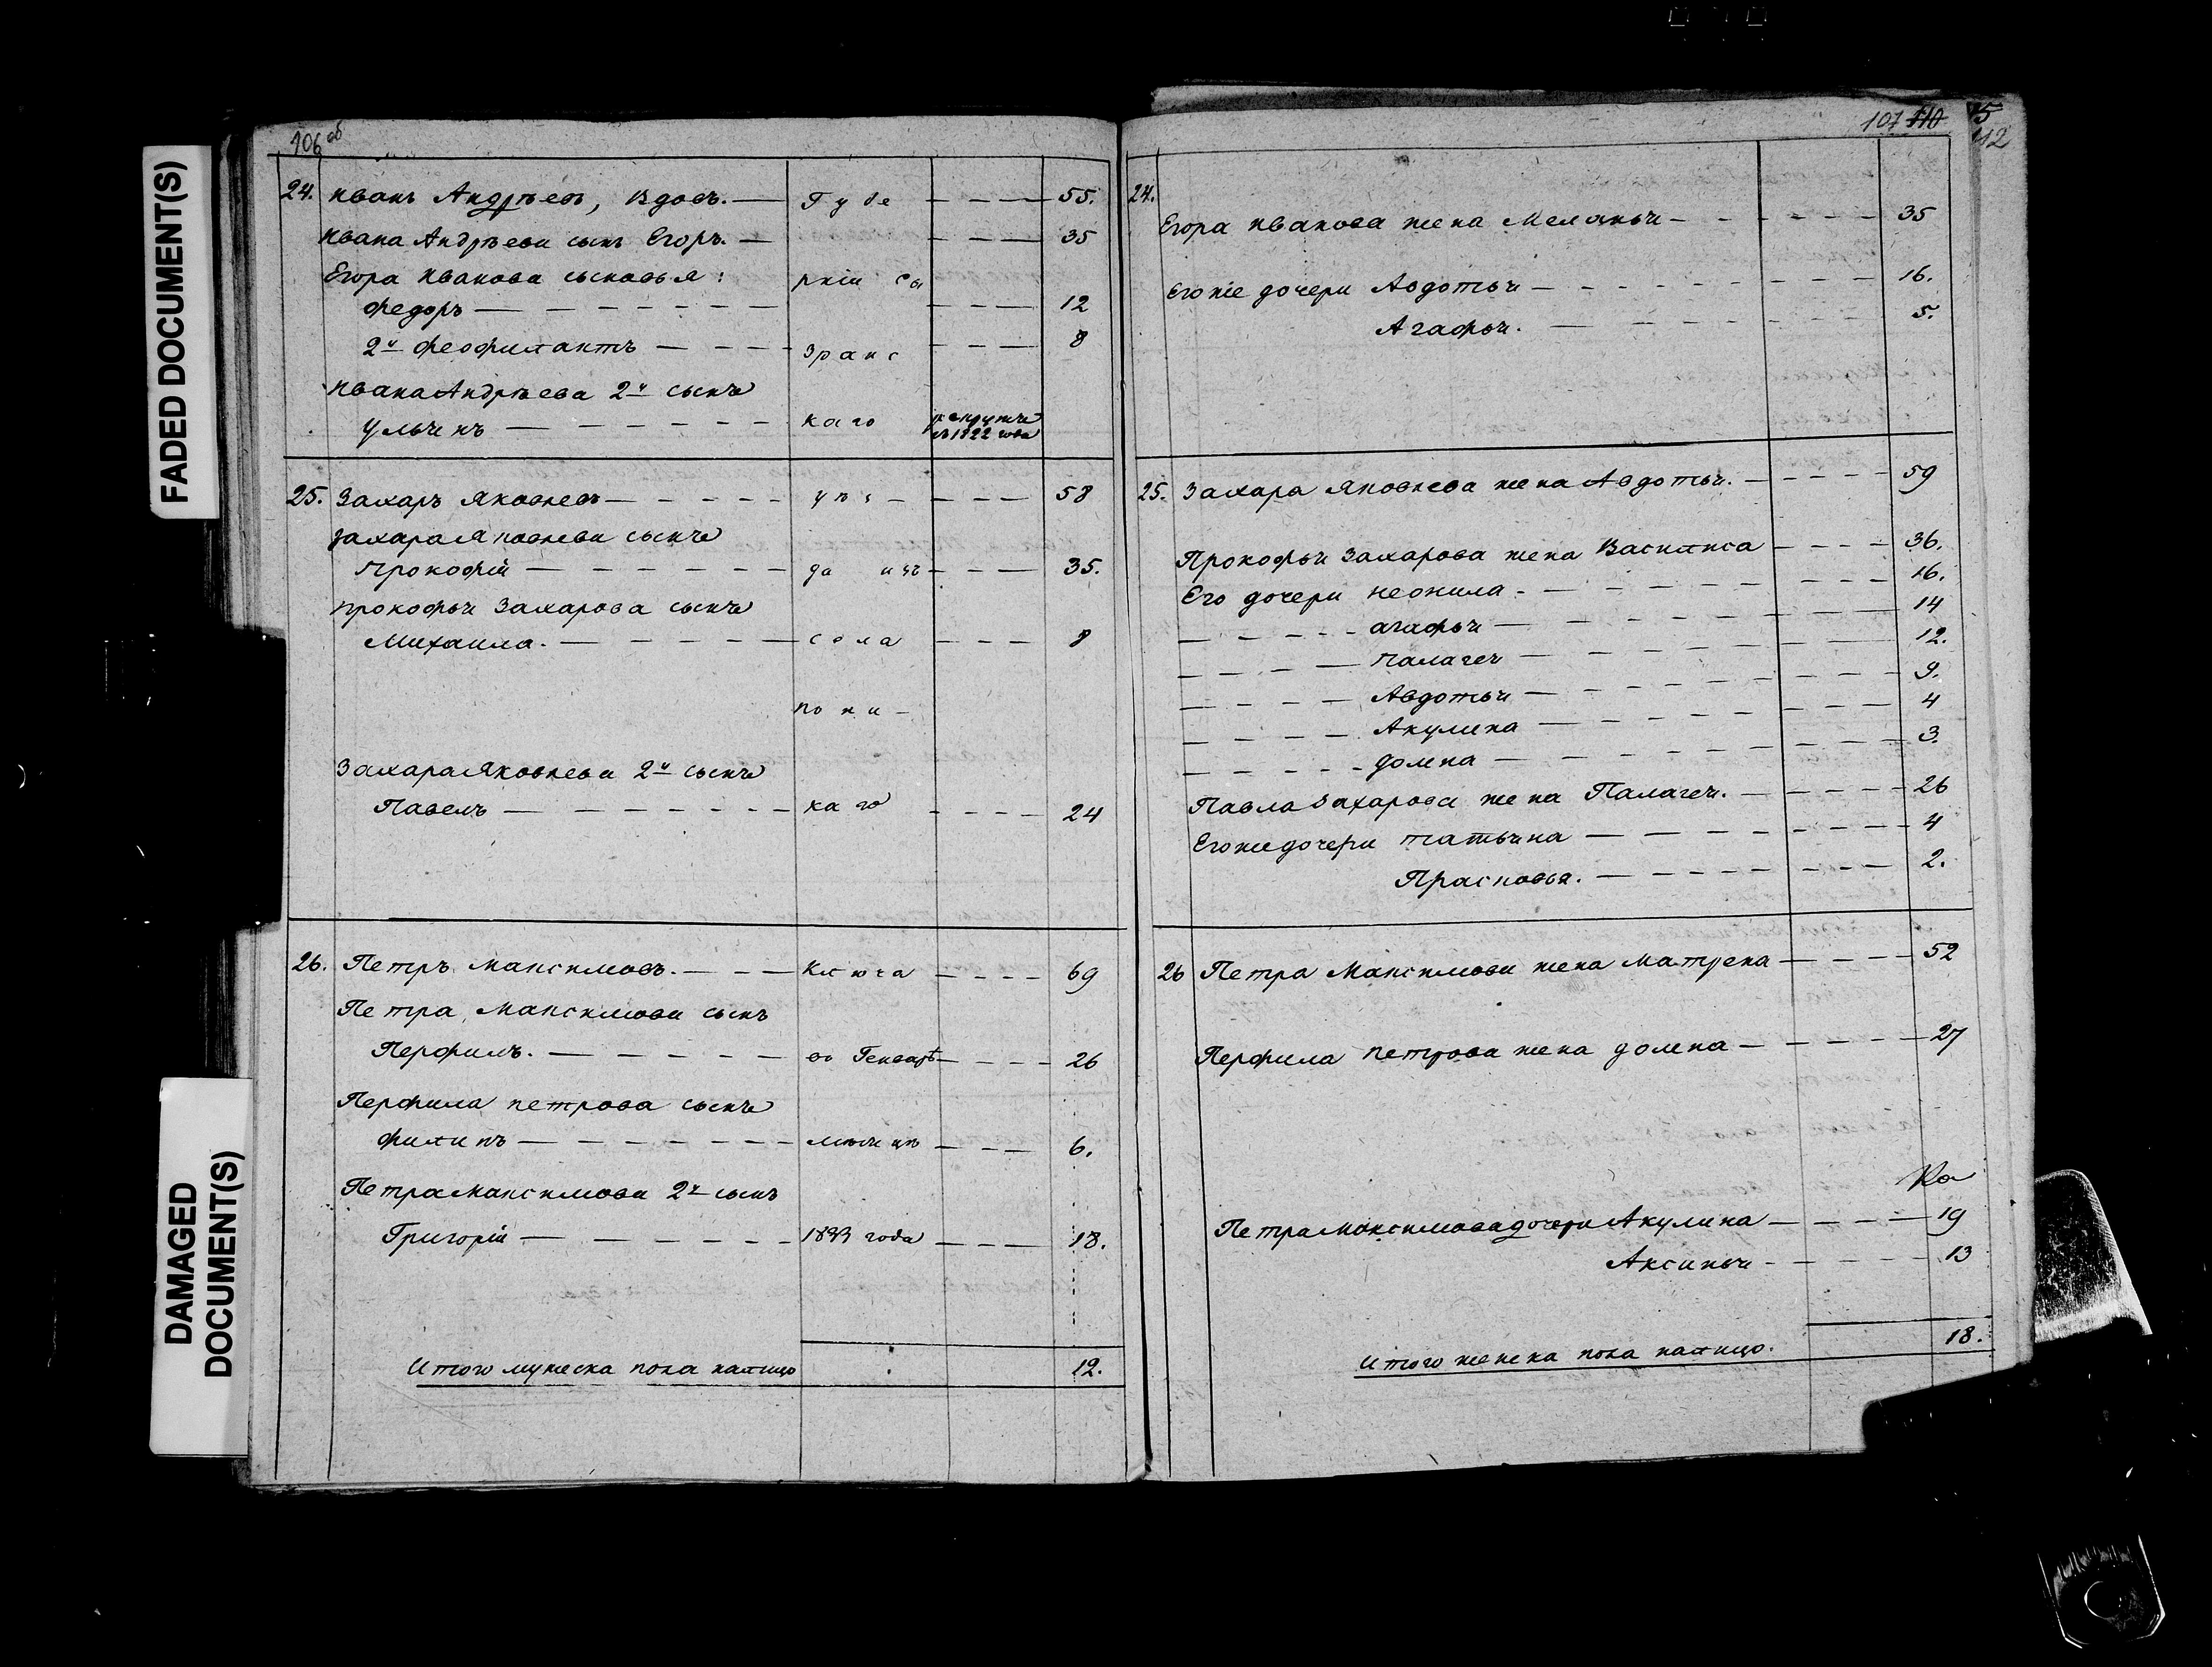 FADED DOCUMENT(S)
DAMAGED
DOCUMENT(S)
106 об
24. Иванъ Андрѣевъ, Вдовъ. — Губе — — — 55.
Ивана Андрѣева сынъ Егоръ. — — — — 35
Егора Иванова сыновья: рніи Сы
Федоръ — — — — — — — 12
2й Феофилактъ — — — зранс — — — 8
Ивана Андрѣева 2й сынъ
Ульянъ — — — — — каго рекрутъ
въ 1822 года
25. Захаръ Яковлевъ — — — — — уѣз — — — — 58
Захара Яковлева сынъ
Прокофiй — — — — — — да — — — 35.
Прокофья Захарова сынъ
Михаила. — — — — — села — — — 8
Захара Яковлева 2й сынъ
Павелъ — — — — — — каго — — — — 24
26. Петръ Максимовъ. — — — Ключа — — — — 69
Петра Максимова сынъ
Перфилъ. — — — — — Генварѣ — — — — 26
Перфила Петрова сынъ
Филипъ — — — — — — мѣсяцѣ — — — 6.
Петра Максимова 2й сынъ
Григорiй — — — — — — года — — — 18.
Итого мужеска пола налицо 12.
107 110
112
24.
Егора Иванова жена Меланья — — — — — — 35
Егоже дочери Авдотья — — — — — — — — 16.
Агафья. — — — — — — — 5.
25. Захара Яковлева жена Авдотья. — — — — 59
Прокофья Захарова жена Василиса — — — — 36.
Его дочери Неонила — — — — — — — 16.
— — — — — Агафья — — — — — — — 14
— — — — Палагея — — — — — — — — 12.
— — — — Авдотья — — — — — — — — 9.
— — — — Акулина — — — — — — — — 4
— — — — — Домна — — — — — — — — 3.
Павла Захарова жена Палагея. — — — — — 26
Егоже дочери Татьяна — — — — — — — — 4
Прасковья. — — — — — — — — 2.
26 Петра Максимова жена Матрена — — — — 52
Перфила Петрова жена Домна — — — — — 27
Петра Максимова дочери Акулина — — — — 19
Аксинья — — — — — 13
Итого женска пола налицо. 18.